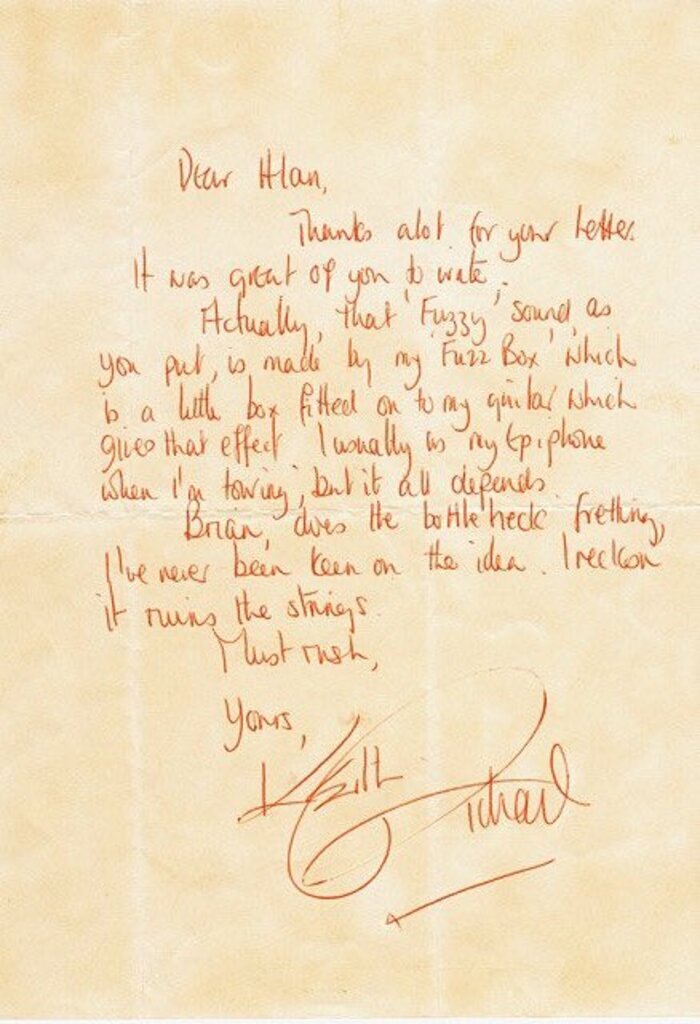 Dear Alan,
Thanks alot for your letter.
It was great of you to write.
Actually, that 'Fuzzy' sound, as
you put, is made by my 'Fuzz Box' which
is a little box fitted on to my guitar which
gives that effect I usually us my Epiphone
when I'm touring, but it all depends
Brian, does the bottleneck fretting,
I've never been keen on the idea. I reckon
it ruins the strings.
Must rush,
Yours,
Keith Richard